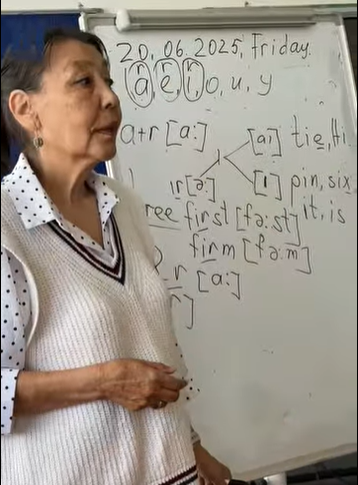 20.06.2025, Friday.
a, e, i, o, u, y
a+r [a:]
[aı] tie, Hi
ı
ır [ə:] [ı] pin, six
first [fə:st] it, is
firm [fə:m]
r [a:]